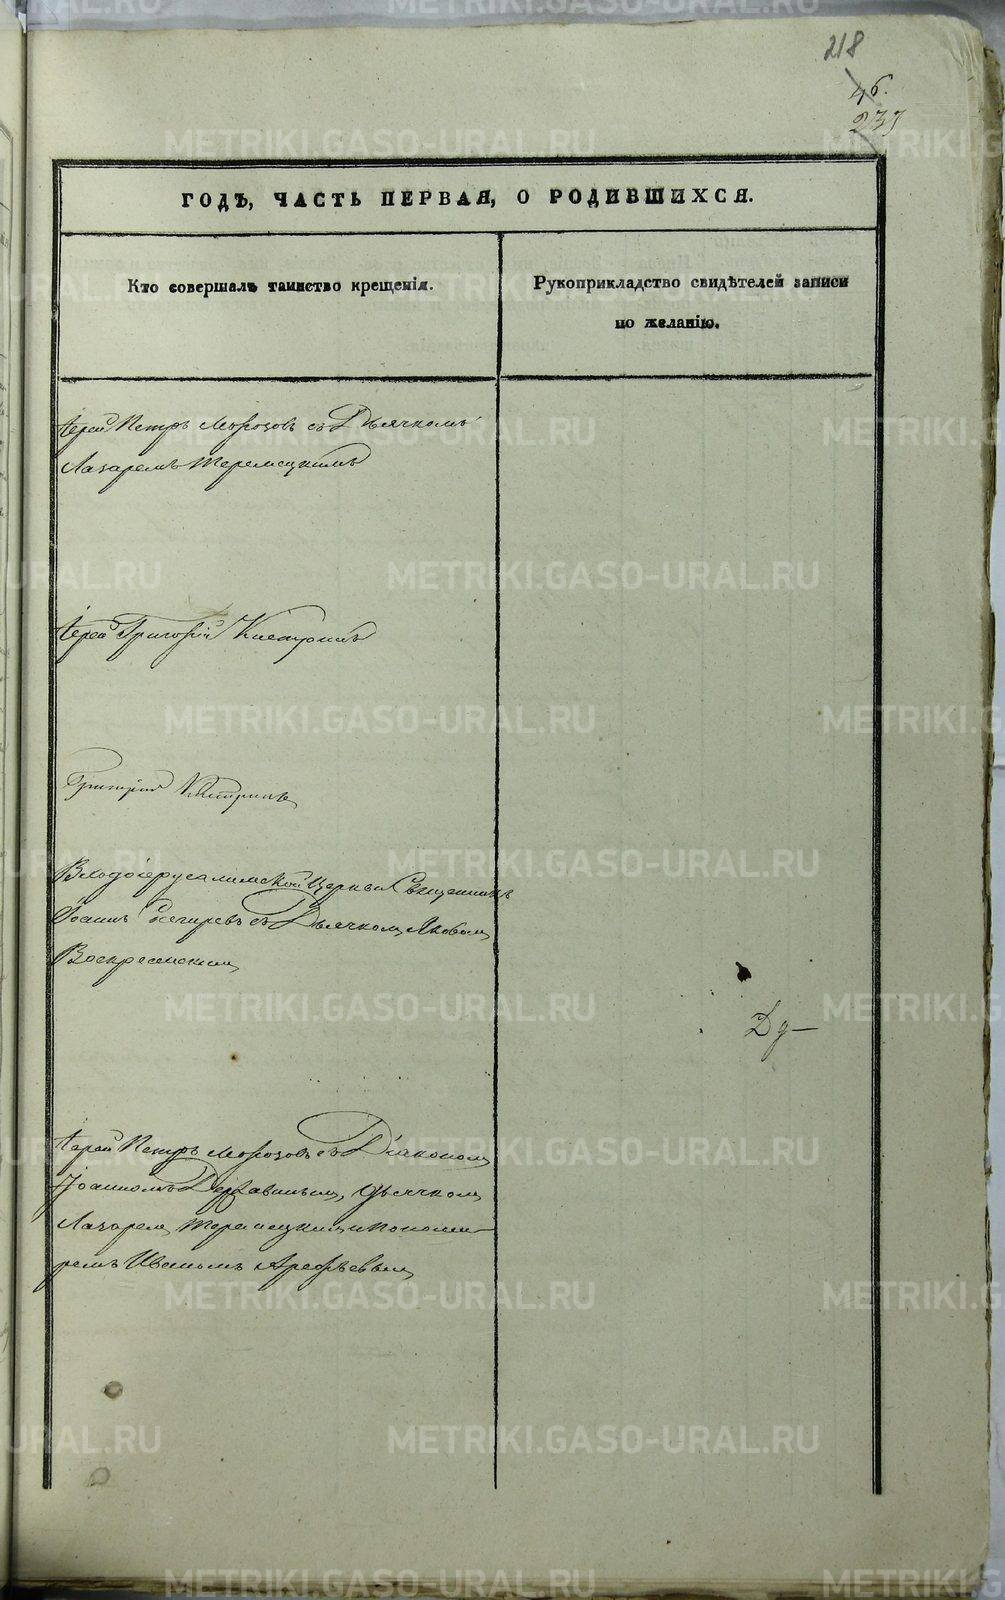 218
46.
237
ГОДЪ, ЧАСТЬ ПЕРВАЯ, О РОДИВШИХСЯ.
Кто совершалъ таинство крещенія.
Рукоприкладство свидѣтелей записи
по желанію.
Іерей Петръ Морозовъ съ Дьячкомъ
Лазаремъ
Іерей Григорій
Григорій
Входоіерусалимской Церкви Священникъ
Іоаннъ съ Дьячкомъ Яковом
Воскресенским
Іерей Петръ Морозовъ съ Діаконом
Іоанномъ Державиным, дьячком
Лазарем и понома-
ремъ Иваномъ Арефьевым
METRIKI.GASO-URAL.RU